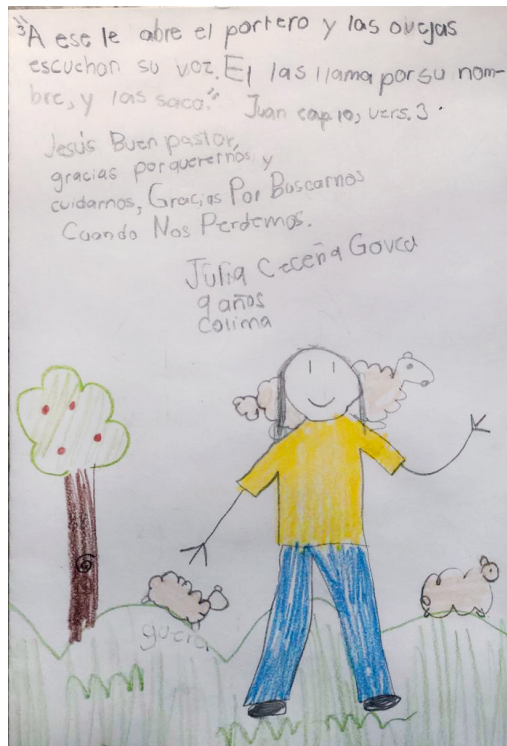 3"A ese le abre el portero y las ovejas
escuchan su voz. El las llama por su nom-
bre, y las saca." Juan cap 10, vers. 3.
Jesús Buen pastor,
gracias por querernos y
cuidarnos, Gracias Por Buscarnos
Cuando Nos Perdemos.
Julia Ceceña Govea
9 años
Colima